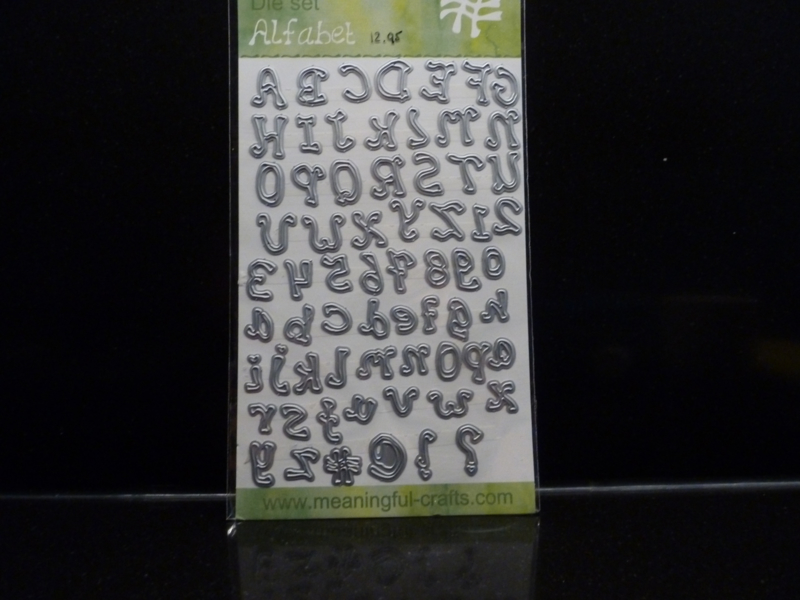 Die set
Alfabet 12,95
A B C D E F G
H I J K L M N
O P Q R S T U
V W X Y Z 1 2
3 4 5 6 7 8 9 0
a b c d e f g h
i j k l m n o p q
r s t u v w x
y z * @ ! ?
www.meaningful-crafts.com